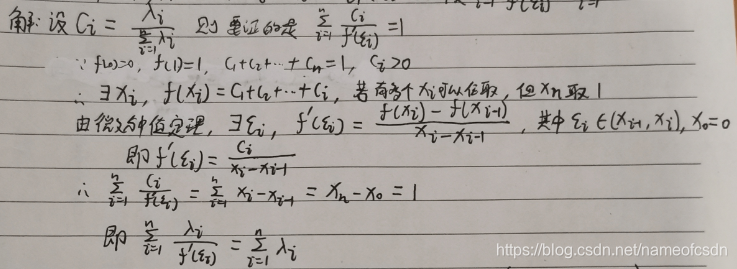 解: 设 Cᵢ = λᵢ / ∑ᵢ₌₁ⁿ λᵢ 则要证的是 ∑ᵢ₌₁ⁿ Cᵢ / f'(ξᵢ) = 1
∵ f(0)=0, f(1)=1, C₁+C₂+⋯+Cₙ=1, Cᵢ>0
∴ ∃xᵢ, f(xᵢ)=C₁+C₂+⋯+Cᵢ, 若有多个xᵢ可以任取, 但xₙ取1
由微分中值定理, ∃ξᵢ, f'(ξᵢ) = (f(xᵢ)-f(xᵢ₋₁)) / (xᵢ-xᵢ₋₁), 其中 ξᵢ∈(xᵢ₋₁, xᵢ), x₀=0
即 f'(ξᵢ) = Cᵢ / (xᵢ-xᵢ₋₁)
∴ ∑ᵢ₌₁ⁿ Cᵢ / f'(ξᵢ) = ∑ᵢ₌₁ⁿ xᵢ-xᵢ₋₁ = xₙ-x₀ = 1
即 ∑ᵢ₌₁ⁿ λᵢ / f'(ξᵢ) = ∑ᵢ₌₁ⁿ λᵢ
https://blog.csdn.net/nameofcsdn